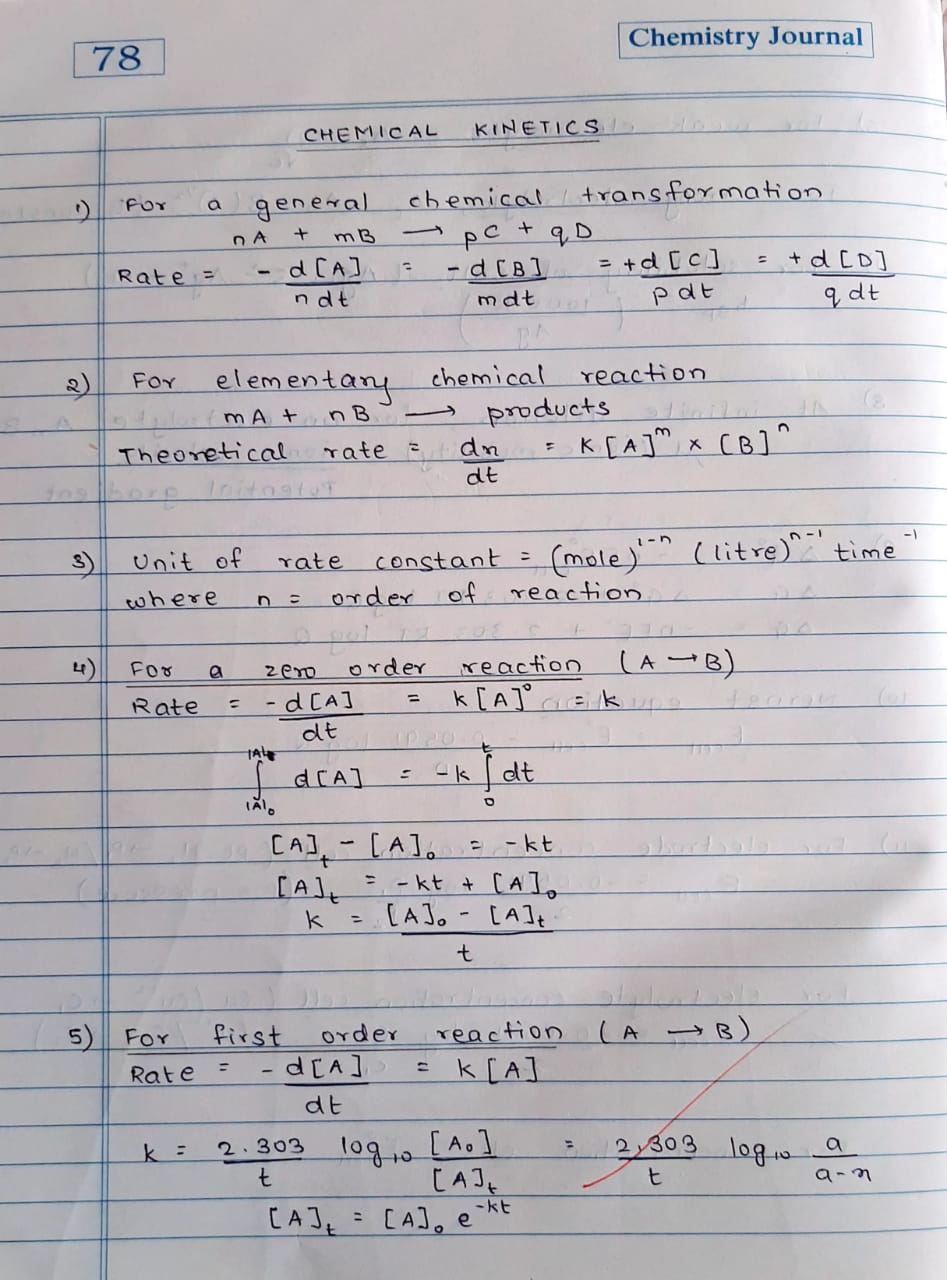 78
Chemistry Journal
CHEMICAL KINETICS
1) For a general chemical transformation
nA + mB → pC + qD
Rate = - d[A]/ndt = - d[B]/mdt = + d[C]/p dt = + d[D]/q dt
2) For elementary chemical reaction
mA + nB → products
Theoretical rate = dx/dt = K[A]^m × [B]^n
3) Unit of rate constant = (mole)^1-n (litre)^n-1 time^-1
where n = order of reaction
4) For a zero order reaction (A → B)
Rate = - d[A]/dt = k[A]^0 = k
∫_[A]0^[A]t d[A] = -k ∫_0^t dt
[A]t - [A]0 = -kt
[A]t = -kt + [A]0
k = [A]0 - [A]t / t
5) For first order reaction (A → B)
Rate = - d[A]/dt = k[A]
k = 2.303/t log10 [A0]/[A]t = 2.303/t log10 a/a-x
[A]t = [A]0 e^-kt